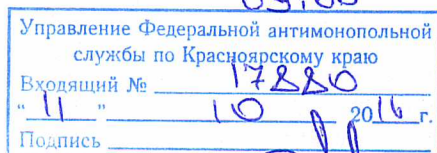 Управление Федеральной антимонопольной
службы по Красноярскому краю
Входящий № 17880
" 11 " 10 2016 г.
Подпись